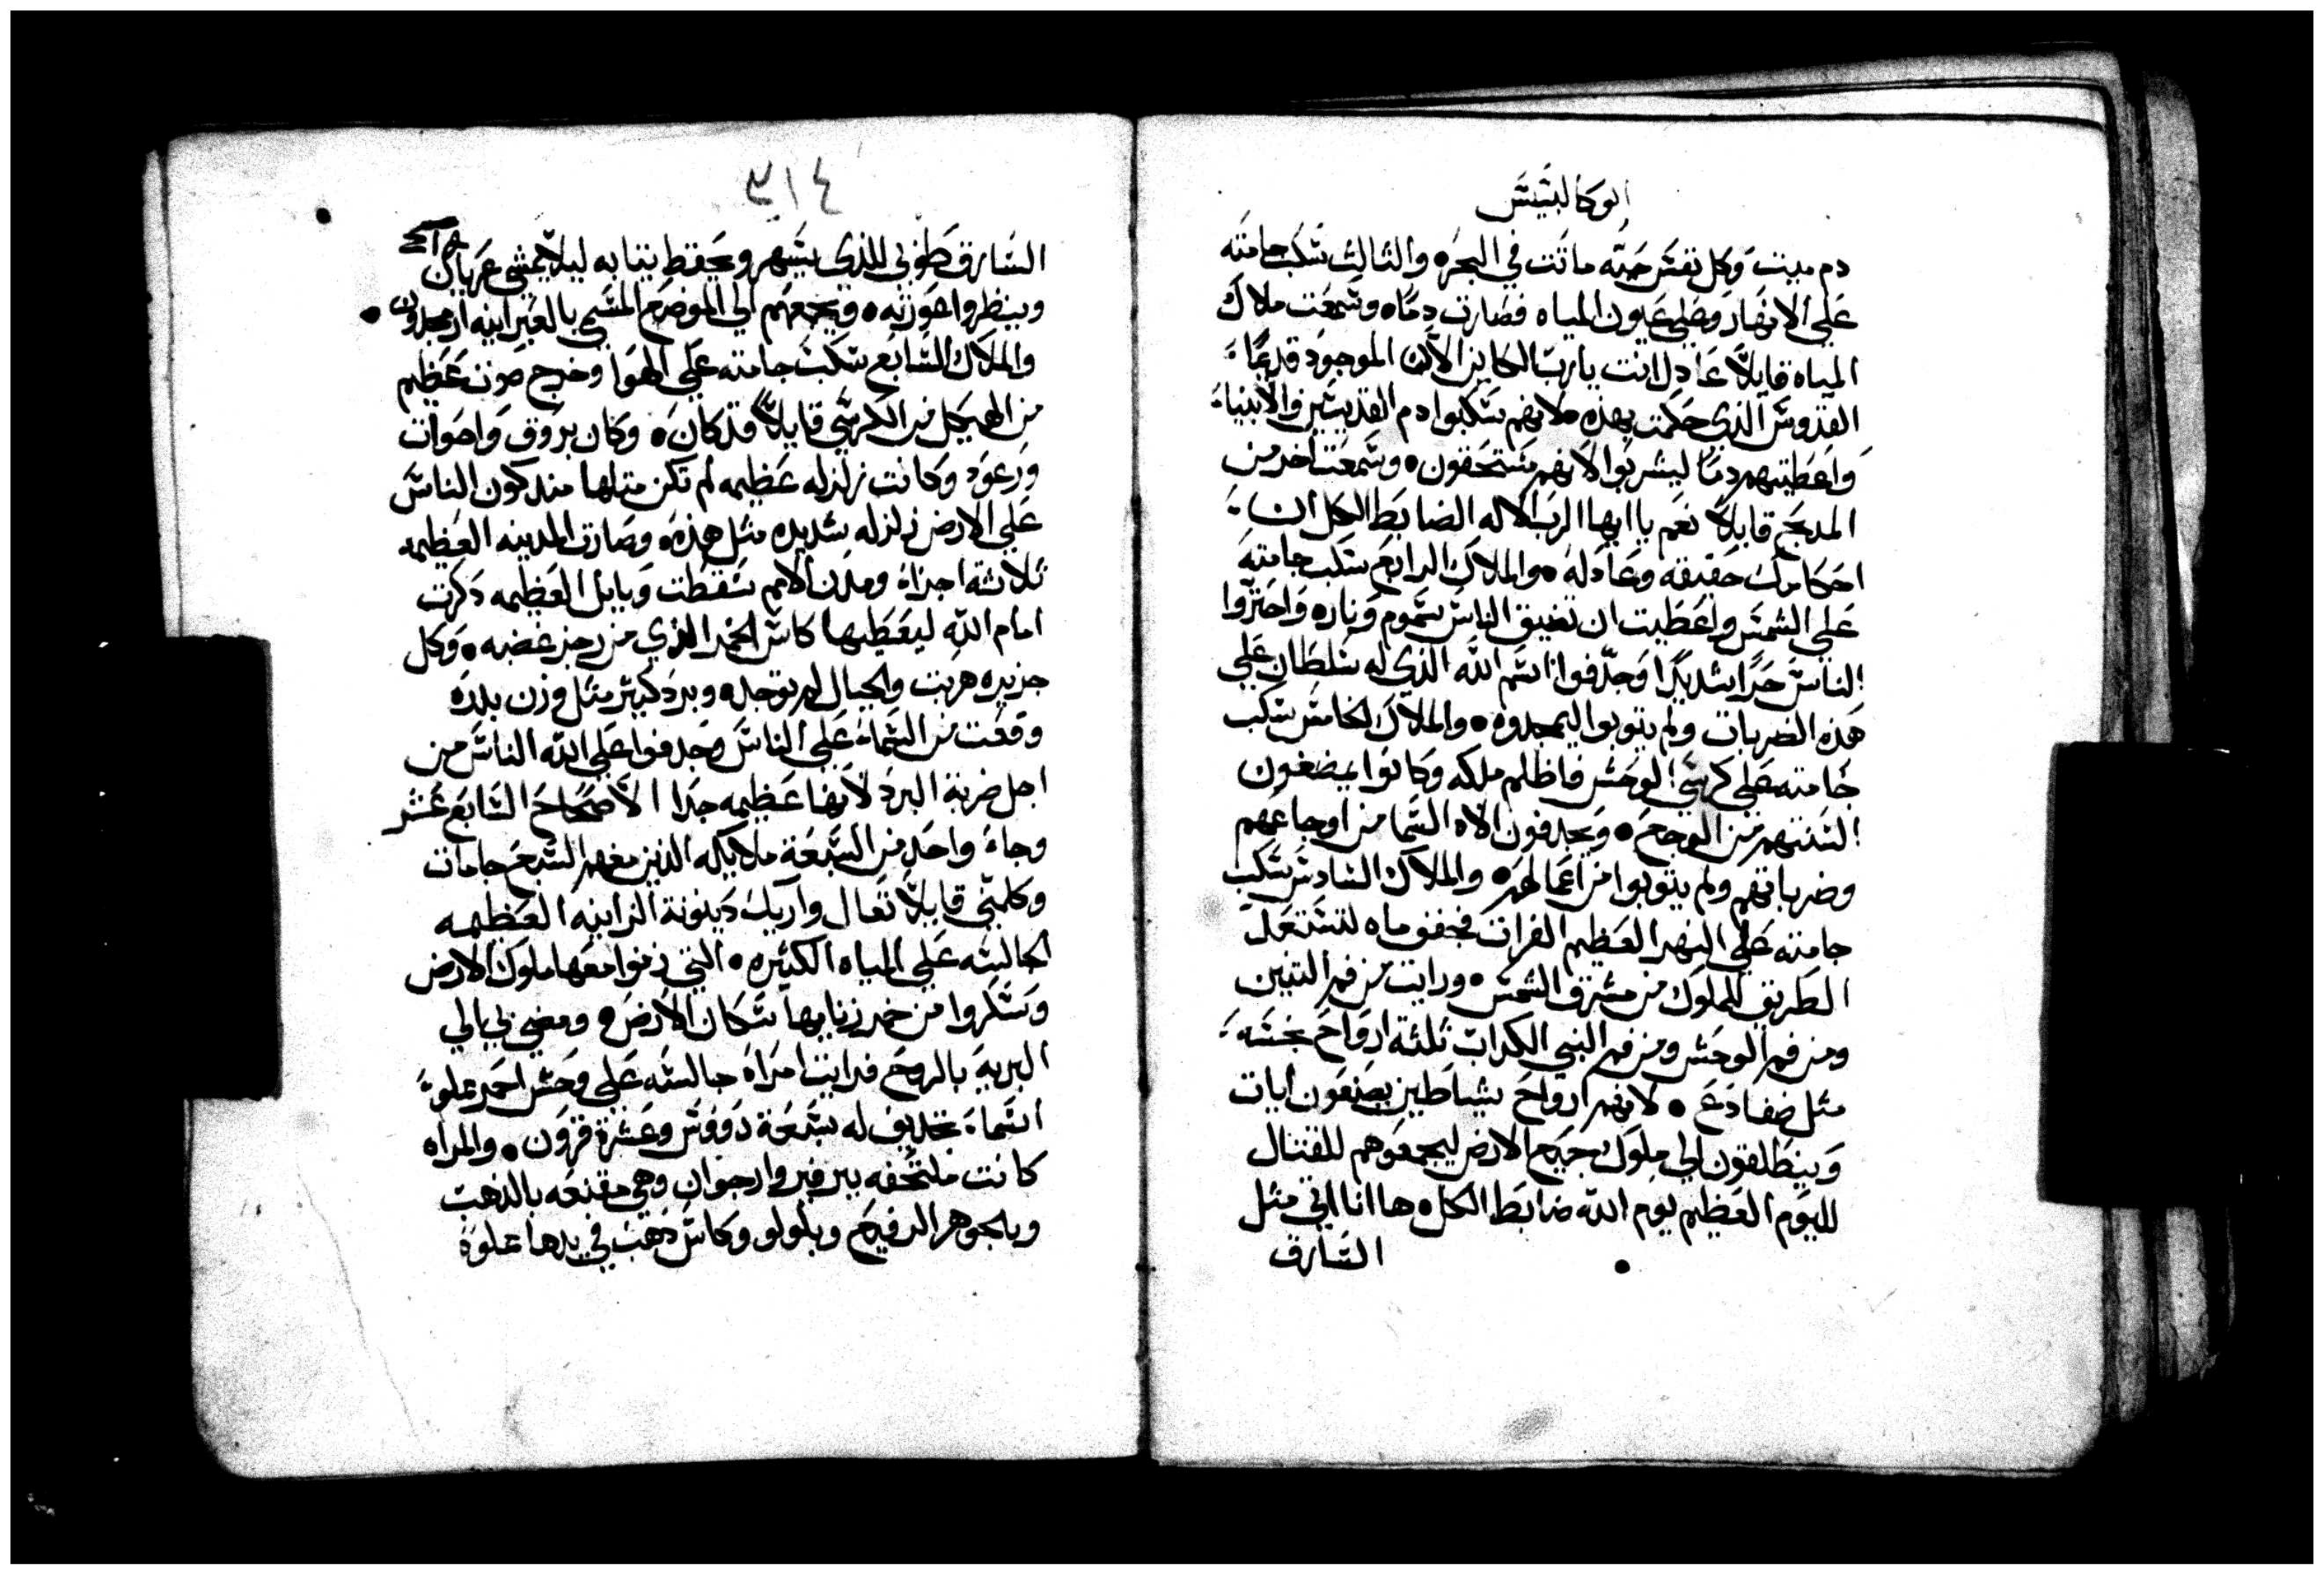 ابوكالبتيس
دم ميت وكل نفس حيّه ماتت في البحر۰ والثالث سكب جامته
علي الانهار وعلي عيون المياه فصارت دمًا۰ وسمعت ملاك
المياه قايلاً عادل انت يارب الكاين الآن الموجود قديمًا
القدوس الذي حكمت بهذه۰ لانهم سكبوا دم القديسين والانبياء
واعطيتهم دمًا ليشربوا لانهم مستحقون۰ وسمعت اخر من
المدبح قايلاً نعم يا ايها الرب الاله الضابط الكل ان
احكامك حقيقه وعادله۰ والملاك الرابع سكب جامته
علي الشمس واعطيت ان تضيق الناس سموم وناره واحترّوا
الناس حرًا شديدًا وجدّفوا اسم الله الذي له سلطان علي
هذه الضربات ولم يتوبوا ليمجدوه۰ والملاك الخامس سكب
جامته علي كرسي الوحش فاظلم ملكه وكانوا يمضغون
السنتهم من الوجع۰ ويجدفون الاه السما من اوجاعهم
وضرباتهم ولم يتوبوا من اعمالهم۰ والملاك السادس سكب
جامته علي النهر العظيم الفرات فجفف ماه لتستعد
الطريق للملوك من مشرق الشمس۰ ورايت من فم التنين
ومن فم الوحش ومن فم النبي الكداب ثلثة ارواح نجسه
مثل ضفادع۰ لانهم ارواح شياطين يصنعون ايات
وينطلقون الي ملوك جميع الارض ليجمعوهم للقتال
لليوم العظيم يوم الله ضابط الكل۰ ها انا اتي مثل
السارق
٣١٤
السارق طوبي للذي يسهر ويحفظ ثيابه ليلا يمشي عريان
وينظروا عورته۰ ويجمعهم الي الموضع المسمي بالعبرانيه ارمجدون
والملاك السابع سكب جامته علي الهوا وخرج صوت عظيم
من الهيكل من الكرسي قايلاً قد كان۰ وكان بروق واصوات
ورعود وكانت زلزله عظيمه لم تكن مثلها مند كون الناس
علي الارض زلزله شديده مثل هذه۰ وصارت المدينه العظيمه
ثلاثة اجزاء ومدن الامم سقطت وبابل العظيمه دكرت
امام الله ليعطيها كاس الخمر الذي من رجز غضبه۰ وكل
جزيره هربت والجبال لم توجد۰ وبرد كبير مثل وزن بدره
وقعت من السماء علي الناس وجدفوا علي الله الناس من
اجل ضربة البرد لانها عظيمه جدا الاصحاح السابع عشر
وجاء واحد من السبعة ملايكه الذين معهم السبع جامات
وكلمني قايلاً تعال واريك دينونة الزانيه العظيمه
الجالسه علي المياه الكثيره۰ التي زنوا معها ملوك الارض
وسكروا من خمر زنايها سكان الارض۰ ومضي بي الي
البريه بالروح فرايت امراة جالسه علي وحش احمر مملوءً
اسماء تجديف له سبعة رووس وعشرة قرون۰ والمراه
كانت ملتحفه ببرفير وارجوان وهي مقنعه بالذهب
وبالجوهر الرفيع وبلولو وكاس ذهب في يدها مملوة